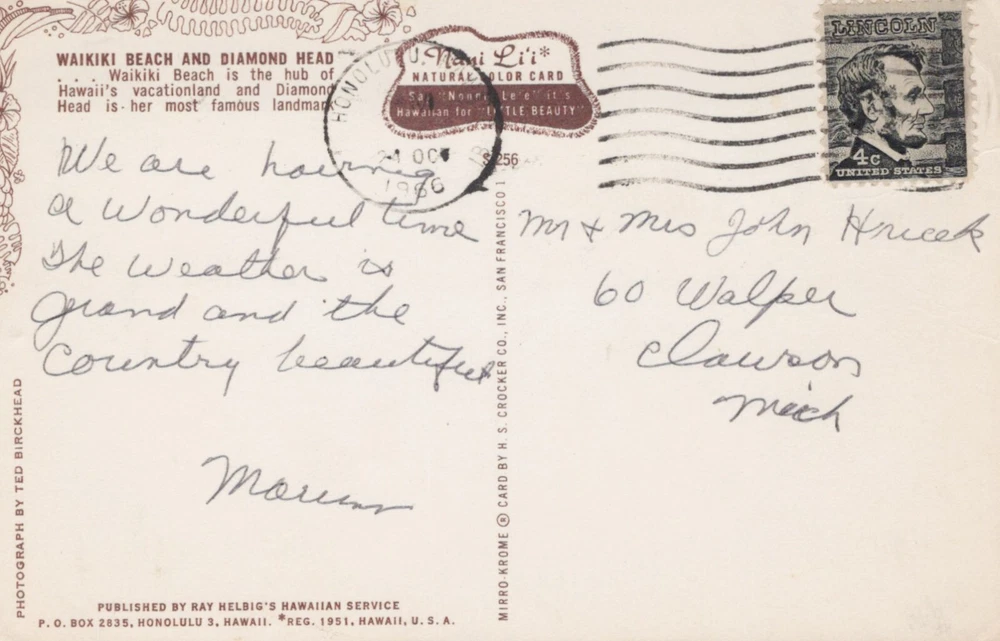 WAIKIKI BEACH AND DIAMOND HEAD
. . . Waikiki Beach is the hub of
Hawaii's vacationland and Diamond
Head is her most famous landmark
HONOLULU,
24 OCT
1966
Nani Li'i*
NATURAL COLOR CARD
Say "Nonni Le'e" it's
Hawaiian for "LITTLE BEAUTY"
LINCOLN
4c
UNITED STATES
S256
We are having
a wonderful time
The weather is
grand and the
country beautiful
Mr & Mrs John Hricek
60 Walper
Clawson
Mich
PHOTOGRAPH BY TED BIRCKHEAD
MIRRO-KROME ® CARD BY H. S. CROCKER CO., INC., SAN FRANCISCO 1
PUBLISHED BY RAY HELBIG'S HAWAIIAN SERVICE
P. O. BOX 2835, HONOLULU 3, HAWAII. *REG. 1951, HAWAII, U. S. A.